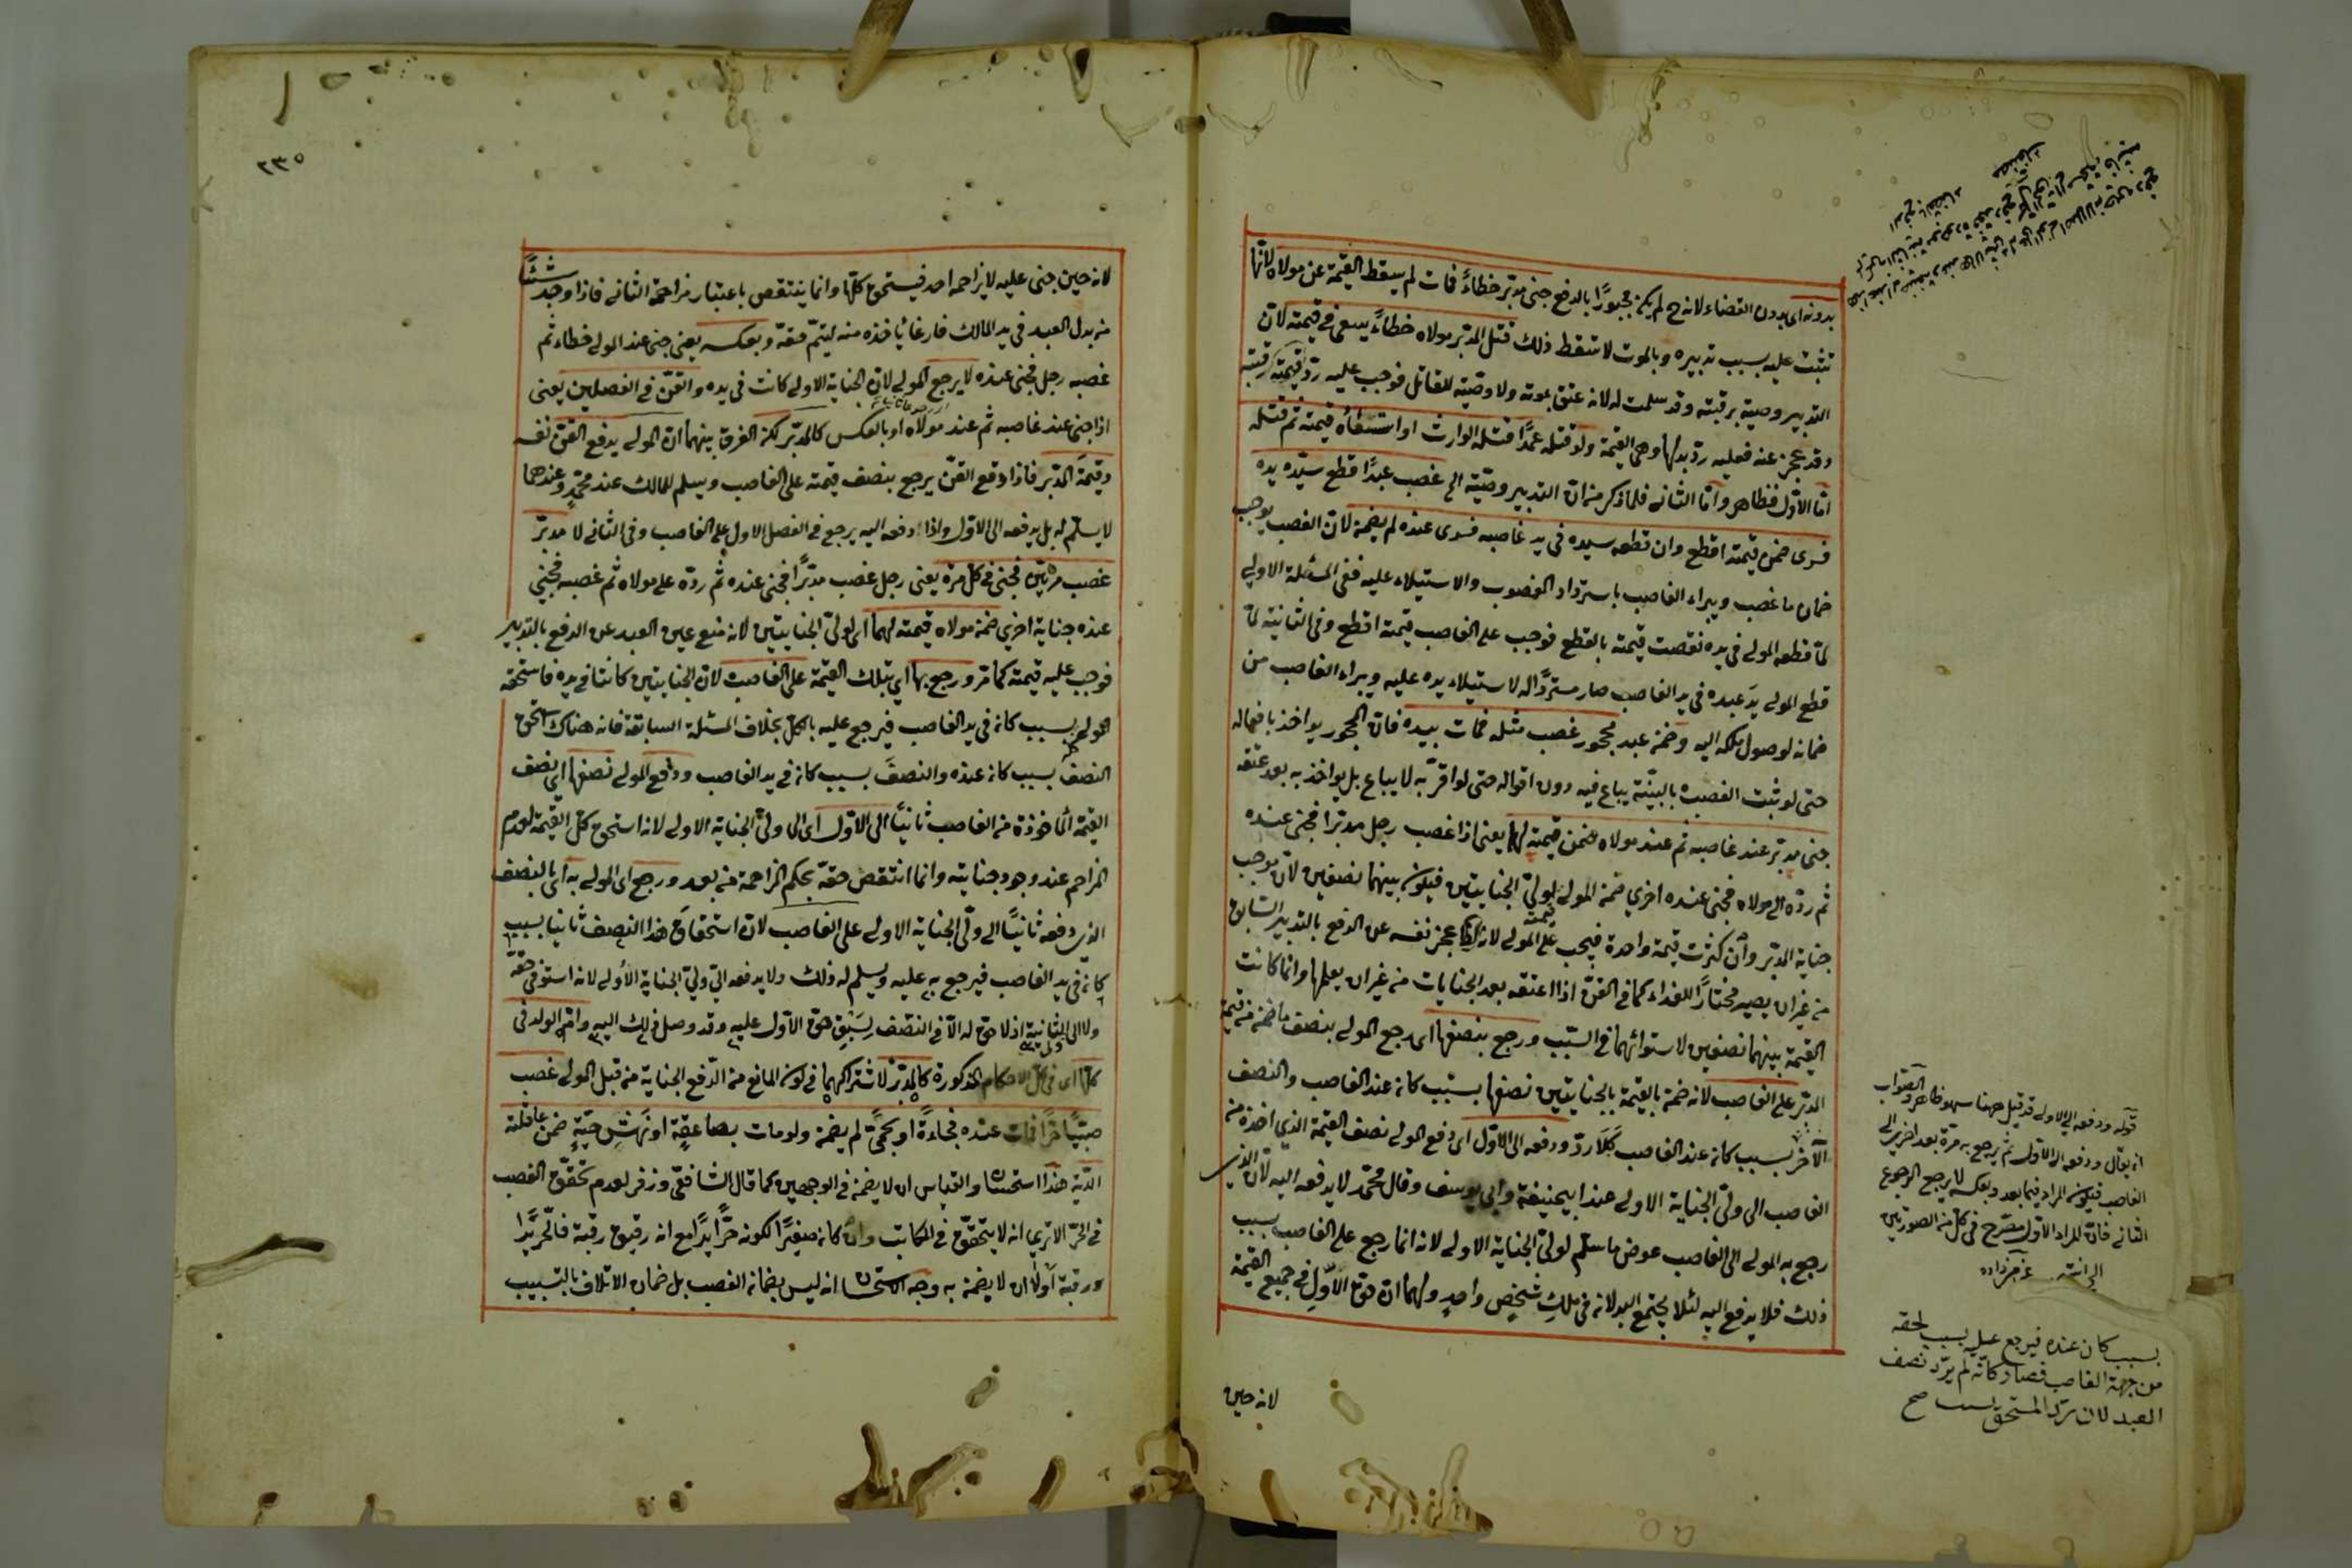 بدونه اى بدون القضاء لانه ح لم يكن مجبورًا بالدفع جنى مدبّر خطاءً فمات لم يسقط القيمة عن مولاه لانّها
تثبت عليه بسبب تدبيره وبالموت لا تسقط ذلك قتل المدبّر مولاه خطاءً يسعى في قيمته لان
التدبير وصية برقبته وقد سلمت له لانه عتق بموته ولا وصية للقاتل فوجب عليه ردّ قيمته رقبته
وقد عجز عنه فعليه ردّ بدلها وهى القيمة ولو قتله عمدًا قتله الوارث او استسعاه قيمته ثم قتله
امّا الاوّل فظاهر وامّا الثانى فلما ذكر من انّ التدبير وصيّة الخ غصب عبدًا قطع سيّده يده
فسرى ضمن قيمته اقطع وان قطعه سيده في يد غاصبه فسرى عنده لم يضمنه لانّ الغصب يوجب
ضمان ما غصب ويبراء الغاصب باسترداد المغصوب والاستيلاء عليه ففى المسئلة الاولى
لمّا قطعه المولى في يده نقصت قيمته بالقطع فوجب على الغاصب قيمته اقطع وفى الثانية لمّا
قطع المولى يدَ عبده في يد الغاصب صار مستردًّا له لاستيلاء يده عليه ويبراء الغاصب من
ضمانه لوصول ملكه اليه وضمن عبد محجور غصب مثله فمات بيده فانّ المحجور يواخذ بافعاله
حتى لو ثبت الغصب بالبيّنة يباع فيه دون اقواله حتى لو اقرّ به لا يباع بل يواخذ به بعد عتقه
جنى مدبّر عند غاصبه ثم عند مولاه ضمن قيمته لهما يعنى اذا غصب رجل مدبّرا فجنى عنده
ثم ردّه الى مولاه فجنى عنده اخرى ضمن المولى لولىّ الجنايتين فيكون بينهما نصفين لانّ موجب
جناية المدبّر وان كثرت قيمة واحدة فيجب على المولى لانه عجز نفسه عن الدفع بالتدبير السّابق
من غير ان يصير مختارًا للفداء كما في القنّ اذا اعتقه بعد الجنايات من غير ان يعلمها وانما كانت
القيمة بينهما نصفين لاستوائهما في السّبب ورجع بنصفها اى رجع المولى بنصف ما ضمن من قيمة
المدبّر على الغاصب لانه ضمن بالقيمة بالجنايتين نصفها بسبب كان عند الغاصب والنصف
الآخر بسبب كان عند الغاصب ودفعه الى الاوّل اى دفع المولى نصف القيمة الذى اخذه من
الغاصب الى ولىّ الجناية الاولى عند ابيحنيفة وابى يوسف وقال محمّد لا يدفعه اليه لانّ الذى
رجع به المولى الى الغاصب عوض ما سلّم لولىّ الجناية الاولى لانه انما رجع على الغاصب بسبب
ذلك فلا يدفع اليه لئلا يجتمع البدلان في ملك شخص واحد ولهما ان حقّ الاوّل في جميع القيمة
لانه حين
قوله ودفعه الى الاولى قد قيل ههنا سهو ظاهر والصّواب
ان يقال ودفعه الى الاوّل ثم يرجع به مرّة بعد اخرى الى
الغاصب فيكون المراد فيما بعد وبعكسه لا يرجع الرجوع
الثانى فانّ المراد الاوّل مصّرح فى كلّ من الصورتين
بسبب كان عنده فيرجع عليه بسبب لحقه
من جهة الغاصب فصار كانّه لم يردّ نصف
العبد لان ردّ المستحق بسبب صح
٢٣٥
لانه حين جنى عليه لا يزاحمه احد فيستحق كلّها وانما ينتقص باعتبار مزاحمة الثانى فاذا وجد شيئًا
من بدل العبد في يد المالك فارغًا ياخذه منه ليتمّ حقّه وبعكسه يعنى جنى عند المولى خطاء ثم
غصبه رجل فجنى عنده لا يرجع المولى لانّ الجناية الاولى كانت في يده والقنّ في الفصلين يعنى
اذا جنى عند غاصبه ثم عند مولاه او بالعكس كالمدبّر لكن الفرق بينهما ان المولى يدفع القنّ نفسه
وقيمةَ المدبّر فاذا دفع القنّ يرجع بنصف قيمته على الغاصب ويسلم للمالك عند محمّدٍ وعندهما
لا يسلّم له بل يدفعه الى الاوّل واذا دفعه اليه يرجع في الفصل الاول على الغاصب وفى الثانى لا مدبّر
غصب مرّتين فجنى في كلّ مرّة يعنى رجل غصب مدبّرًا فجنى عنده ثم ردّه على مولاه ثم غصبه فجنى
عنده جناية اخرى ضمن مولاه قيمته لهما اى لولىّ الجنايتين لانه منع عين العبد عن الدفع بالتدبير
فوجب عليه قيمته كما مرّ ورجع بها اى بتلك القيمة على الغاصب لانّ الجنايتين كانتا في يده فاستحقّه
المولى بسبب كان في يد الغاصب فيرجع عليه بالكلّ بخلاف المسئلة السابقة فانه هناك استحق
النصف بسبب كان عنده والنصفَ بسبب كان في يد الغاصب ودفع المولى نصفها اى نصف
القيمة المأخوذة من الغاصب ثانيًا الى الاوّل اى الى ولىّ الجناية الاولى لانه استحق كلّ القيمة لعدم
المزاحم عند وجود جنايته وانما انتقص حقّه بحكم المزاحمة من بعد ورجع اى المولى به اى بالنصف
الذى دفعه ثانيًا الى ولىّ الجناية الاولى على الغاصب لانّ استحقاق هذا النصف ثانيا بسبب
كان في يد الغاصب فيرجع به عليه ويسلم له ذلك ولا يدفعه الى ولىّ الجناية الأولى لانه استوفى حقّه
ولا الى الثانية اذ لا حقّ له الّا في النصف لسَبْقِ حقّ الاوّل عليه وقد وصل ذلك اليه وامّ الولد في
كلّها اى في كلّ الاحكام المذكورة كالمدبّر لاشتراكهما في كون المانع من الدّفع الجناية من قبل المولى غصب
صبيًّا حرًّا فمات عنده فجاءةً او بحمّىً لم يضمن ولو مات بصاعقةٍ او نهْشِ حيّةٍ ضمن عاقلته
الدّية هذا استحسان والقياس ان لا يضمن في الوجهين كما قال الشافعى وزفر لعدم تحقّق الغصب
في الحرّ الا ترى انه لا يتحقّق في المكاتب وان كان صغيرًا لكونه حرًّا يدًا مع انه رقيق رقبة فالحرّ يدًا
ورقبة أولى ان لا يضمن به وجه الاستحسان انه ليس بضمان الغصب بل ضمان الاتلاف بالتسبيب